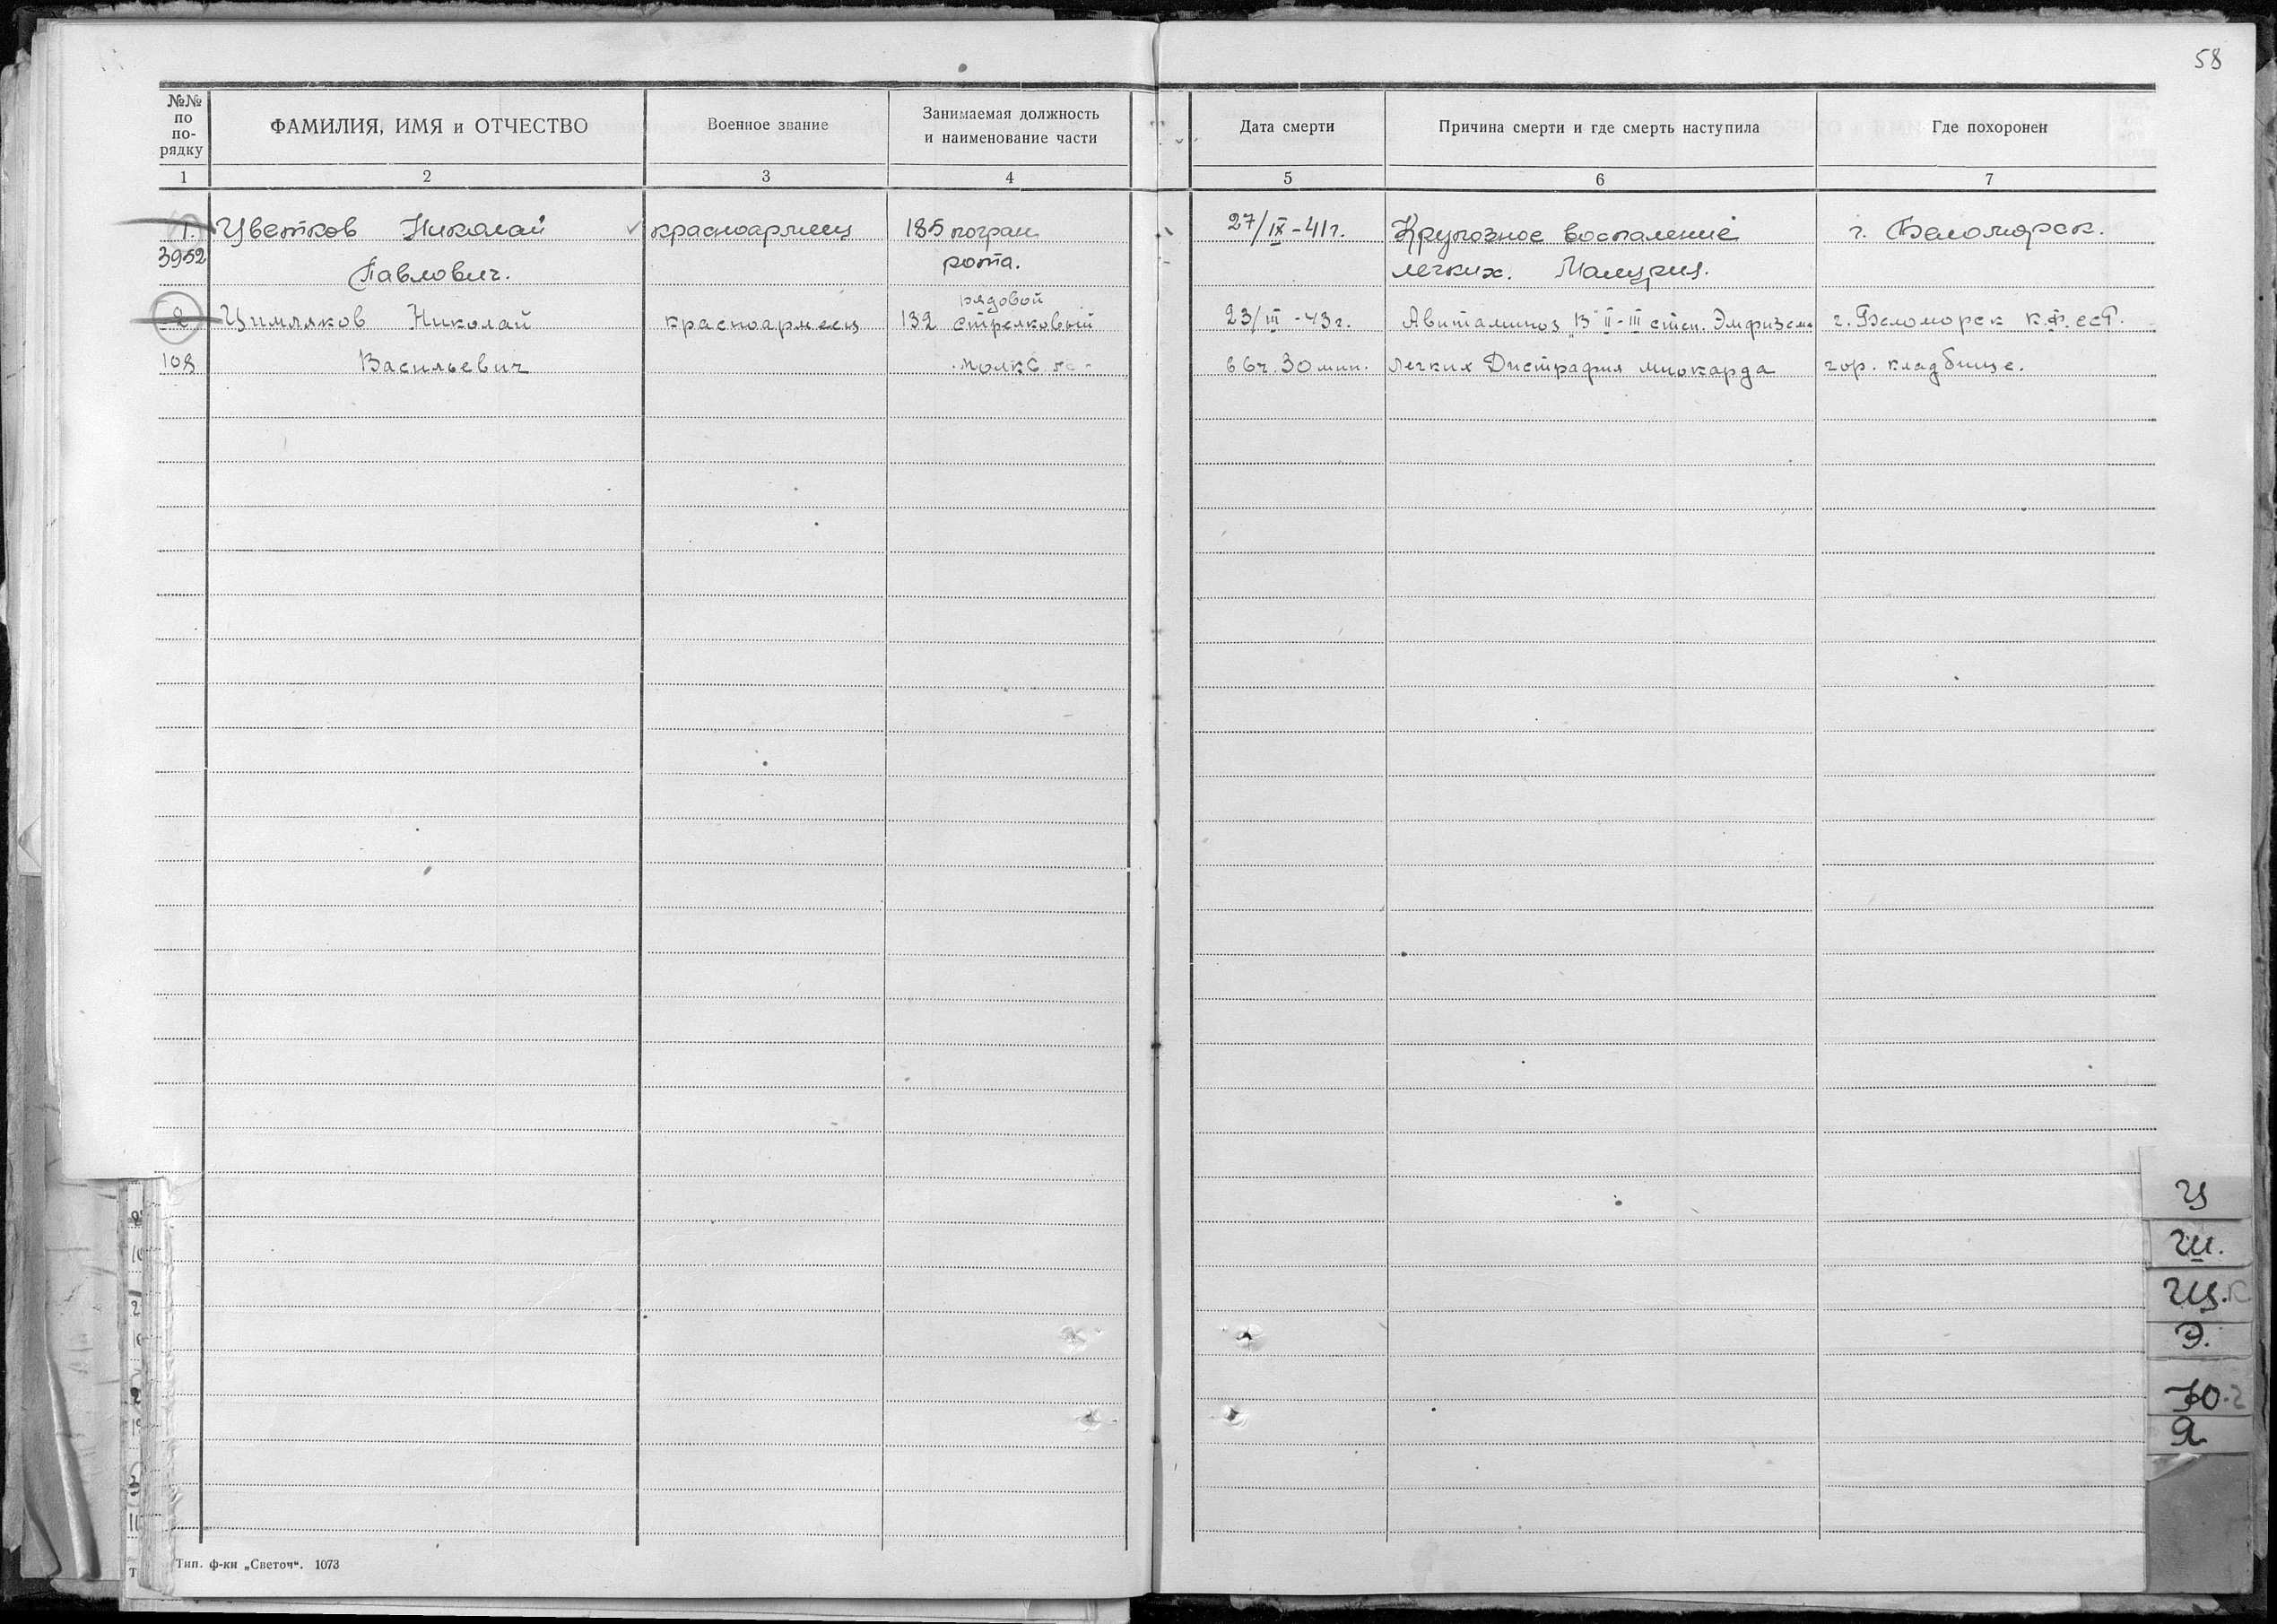 58
№№ по по- рядку
ФАМИЛИЯ, ИМЯ и ОТЧЕСТВО
Военное звание
Занимаемая должность
и наименование части
Дата смерти
Причина смерти и где смерть наступила
Где похоронен
1 2 3 4 5 6 7
1. Цветков Николай красноармеец 185 погран. 27/IX-41г. Крупозное воспаление г. Беломорск.
3952 Павлович. рота. легких.
рядовой
2 Цимляков Николай красноармеец 132 стрелковый 23/III-43г. Авитаминоз "В" II-III степ. Эмфизема г. Беломорск К.Ф.ССР.
108 Васильевич полк в 6ч. 30 мин. легких Дистрафия миокарда гор. кладбище.
Ц
Ш.
Щ.
Э.
Ю.
Я
Тип. ф-ки „Светоч". 1073